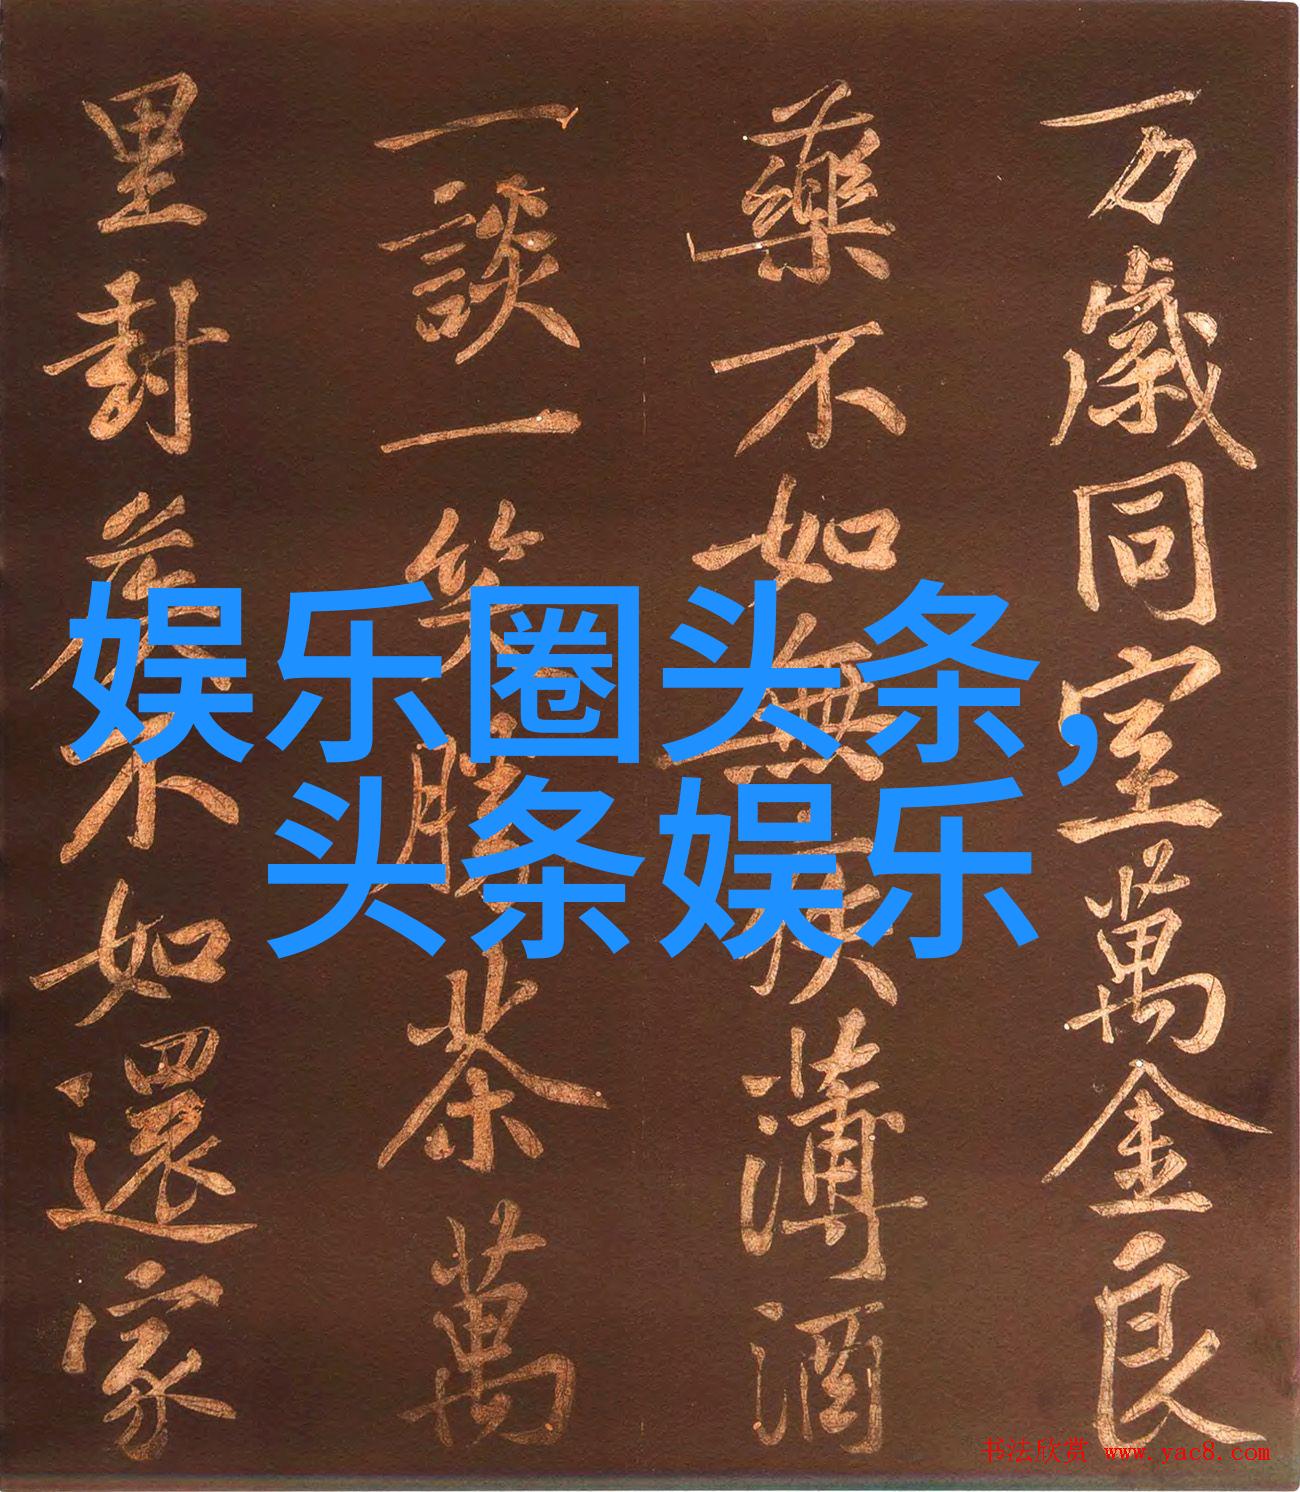 万歲同室萬金良
藥不如無疾薄酒
一談一笑勝茶萬
里封矦不如還家
娱乐圈头条,
头条娱乐
书法欣赏 www.yac8.com